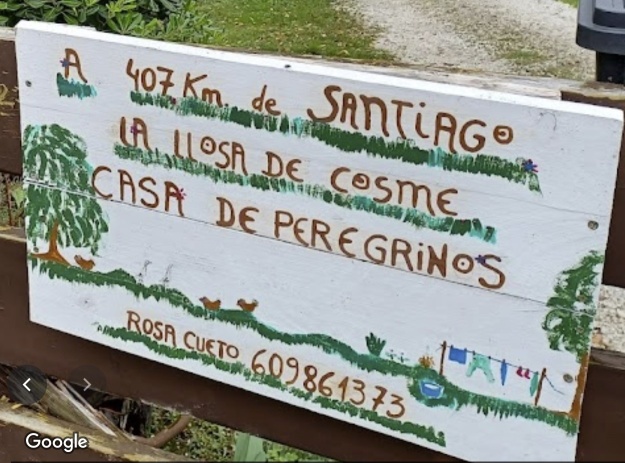 A 407 Km de SANTIAGO
LA LLOSA DE COSME
CASA DE PEREGRINOS
ROSA CUETO 609861373
Google